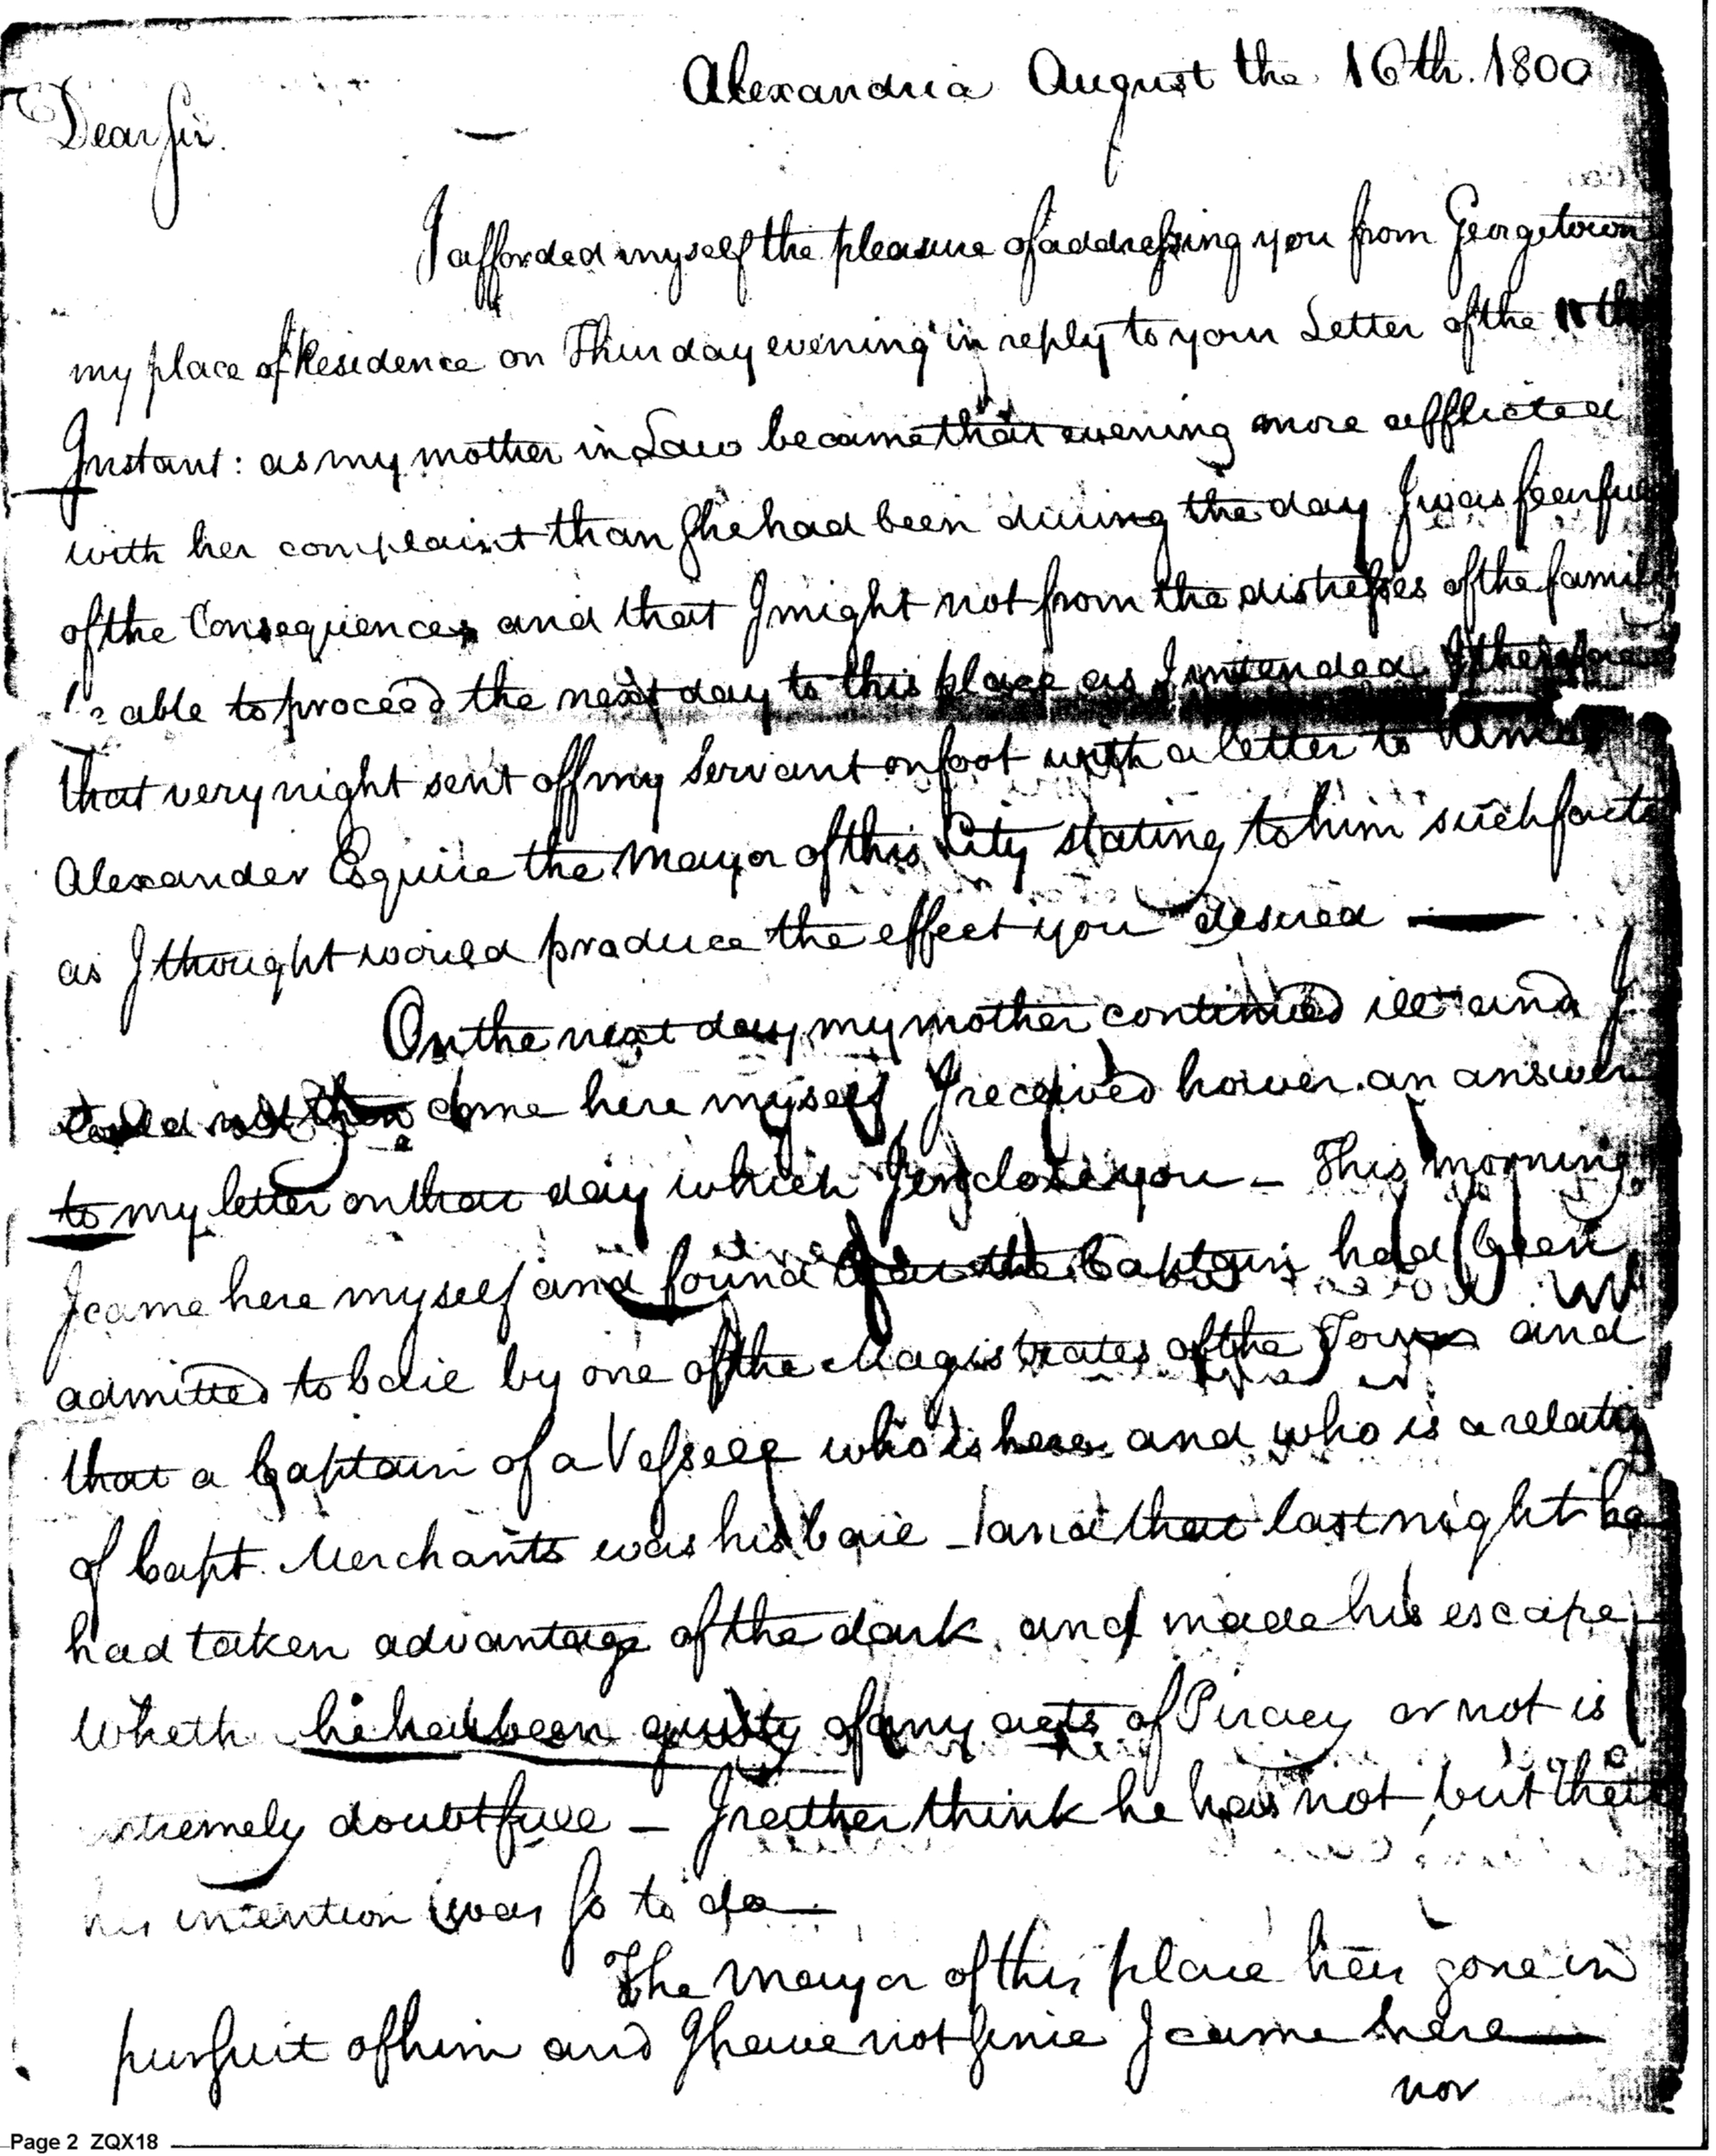 Alexandria August the 16th. 1800
Dear Sir.
I afforded myself the pleasure of addressing you from Georgetown
my place of Residence on Thursday evening in reply to your Letter of the 11th
Instant: as my mother in Law became that evening more afflicted
with her complaint than She had been during the day I was fearful
of the Consequences and that I might not from the distresses of the family
be able to proceed the next day to this place as I intended. I therefore
that very night sent off my Servant on foot with a letter to
Alexander Esquire the Mayor of this City stating to him such facts
as I thought would produce the effect you desired —
On the next day my mother continued ill and I
could not then come here myself I received hower an answer
to my letter on that day which I enclose you — This morning
I came here myself and found that the Captain had been
admitted to baie by one of the Magistrates of the Town and
that a Captain of a Vessell who is here and who is a relati
of Capt. Merchants was his baie — and that last night he
had taken advantage of the dark and made his escape —
Wheth he has been guilty of any acts of Piracy or not is
extremely doubtfull — I rather think he has not but that
his intention was So to do —
The Mayor of this place has gone in
pursuit of him and I have not Since I came here —
nor
Page 2 ZQX18